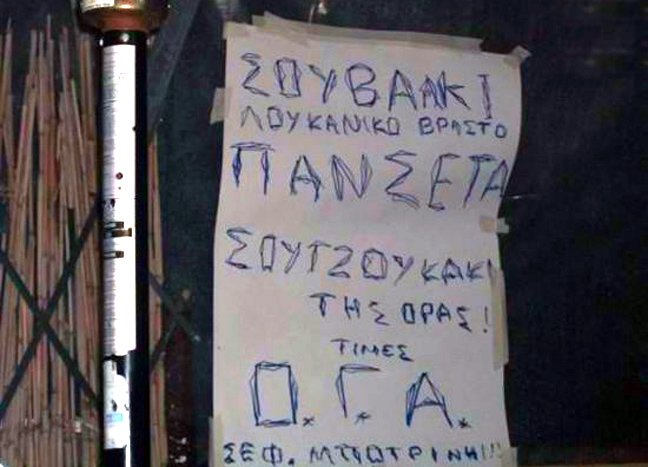 ΣΟΥΒΛΑΚΙ
ΛΟΥΚΑΝΙΚΟ ΒΡΑΣΤΟ
ΠΑΝΣΕΤΑ
ΣΟΥΤΖΟΥΚΑΚΙ
ΤΗΣ ΟΡΑΣ!
ΤΙΜΕΣ
Ο.Γ.Α.
ΣΕΦ. ΜΠΟΤΡΙΝΗ!!!